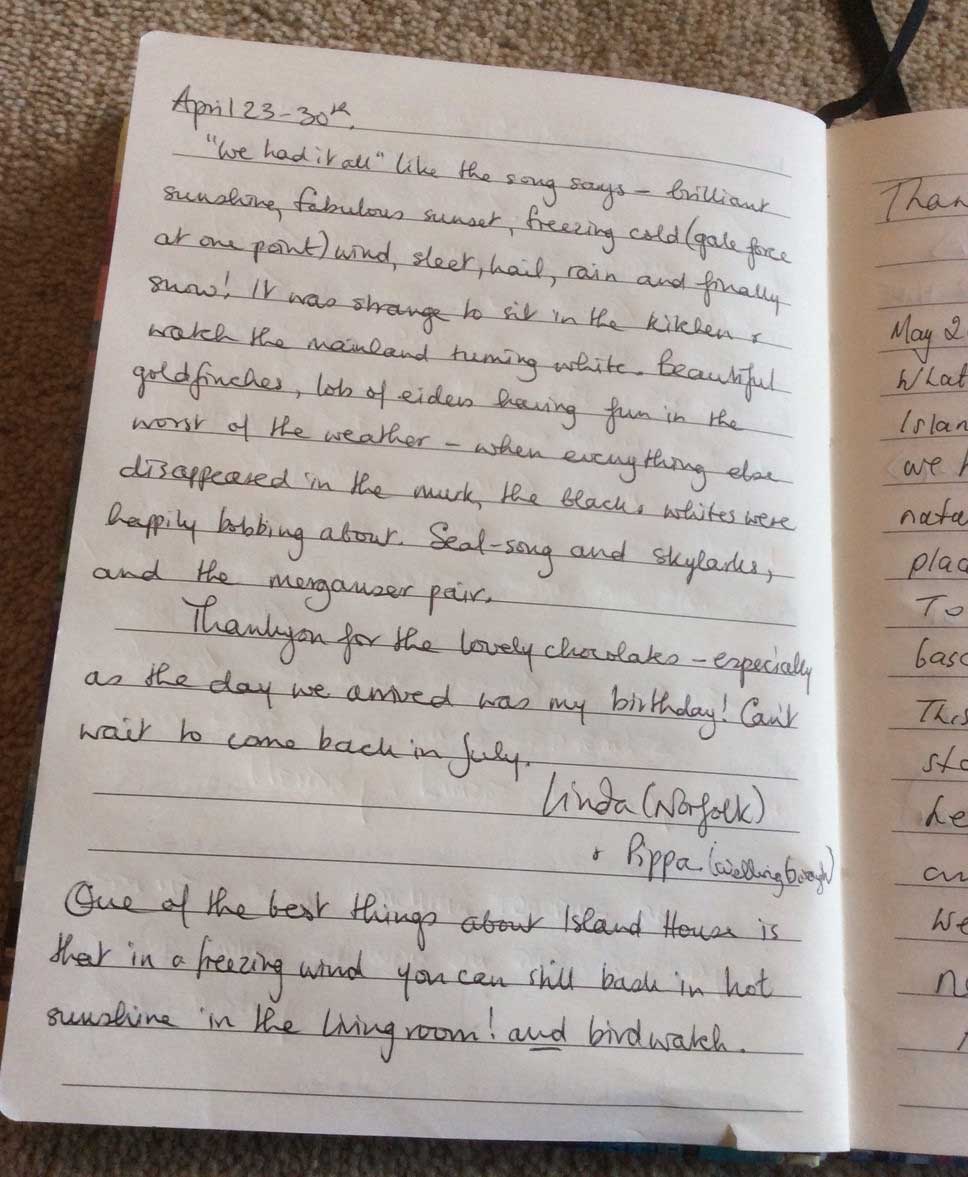 April 23-30th.
"We had it all" like the song says - brilliant
sunshine, fabulous sunset, freezing cold (gale force
at one point) wind, sleet, hail, rain and finally
snow! It was strange to sit in the kitchen &
watch the mainland turning white. Beautiful
goldfinches, lots of eiders having fun in the
worst of the weather - when everything else
disappeared in the murk, the black & whites were
happily bobbing about. Seal-song and skylarks,
and the merganser pair.
Thankyou for the lovely chocolates - especially
as the day we arrived was my birthday! Can't
wait to come back in July.
Linda (Norfolk)
& Pippa (Wellingborough)
One of the best things about Island House is
that in a freezing wind you can still bask in hot
sunshine in the living room! and birdwatch.
Than
May 2
What
Islan
we h
nata
plac
To
basc
This
sto
Le
an
We